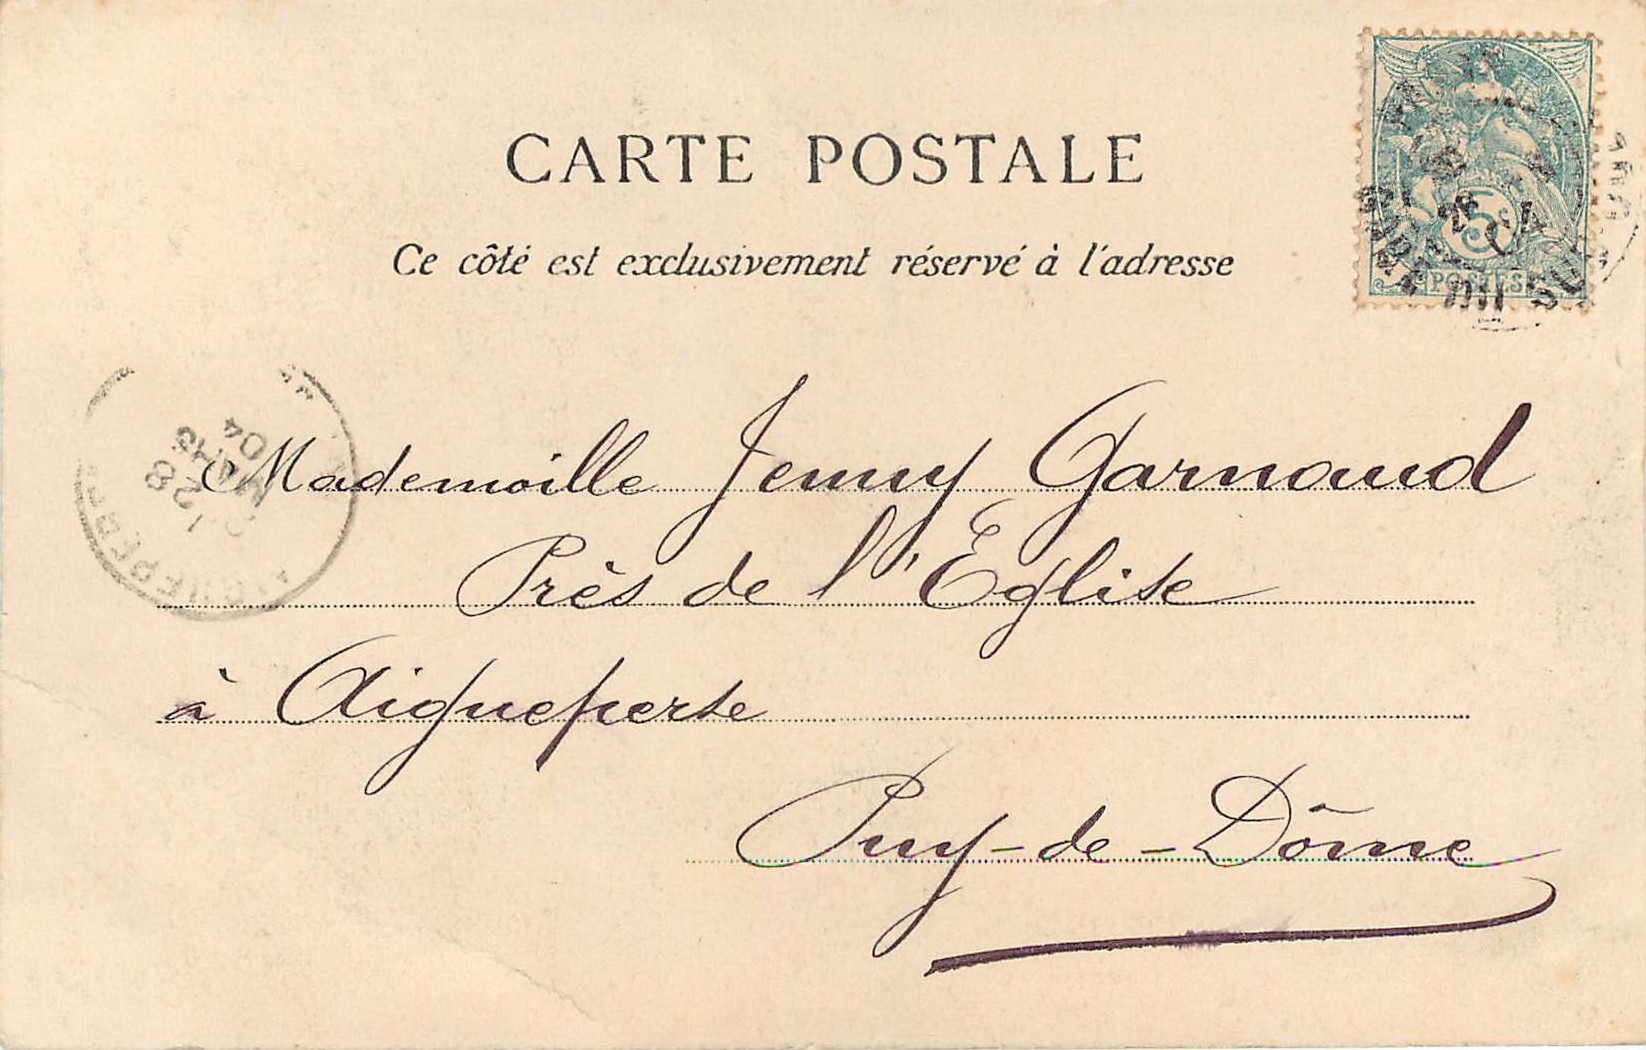 CARTE POSTALE
Ce côté est exclusivement réservé à l'adresse
5c
POSTES
28
MARS
04
Mademoille Jenny Garnaud
Près de l'Eglise
à Aigueperse
Puy-de-Dôme